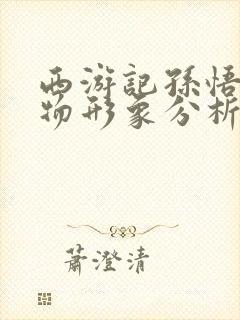 西游記孫悟
物形象分析
蕭澄清